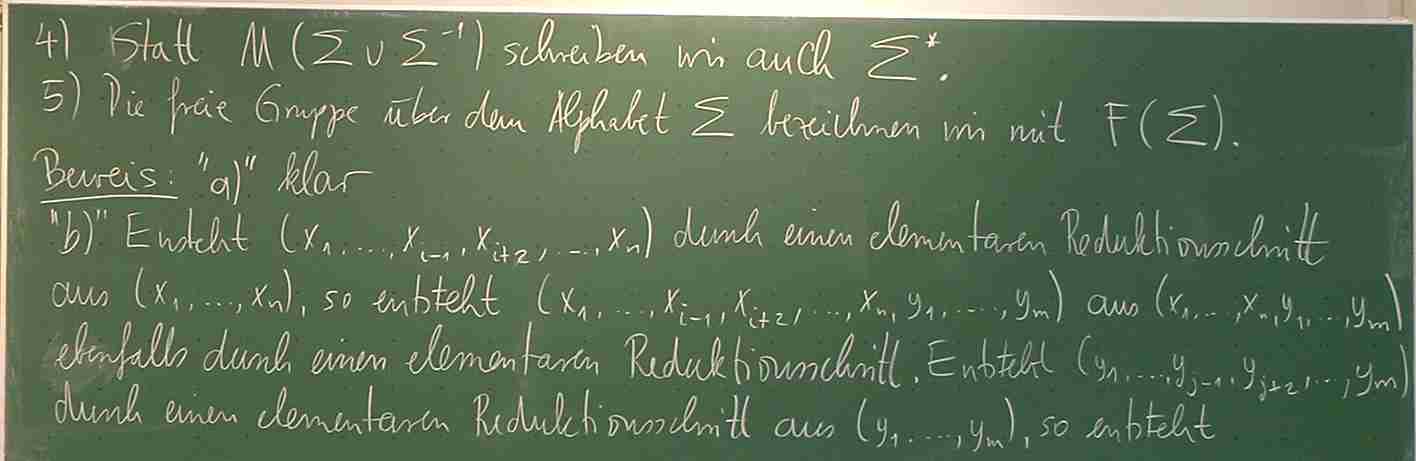 4) Statt M(Σ ∪ Σ⁻¹) schreiben wir auch Σ*.
5) Die freie Gruppe über dem Alphabet Σ bezeichnen wir mit F(Σ).
Beweis: "a)" klar
"b)" Entsteht (x₁, ..., xᵢ₋₁, xᵢ₊₂, ..., xₙ) durch einen elementaren Reduktionsschritt
aus (x₁, ..., xₙ), so entsteht (x₁, ..., xᵢ₋₁, xᵢ₊₂, ..., xₙ, y₁, ..., yₘ) aus (x₁, ..., xₙ, y₁, ..., yₘ)
ebenfalls durch einen elementaren Reduktionsschritt. Entsteht (y₁, ..., yⱼ₋₁, yⱼ₊₂, ..., yₘ)
durch einen elementaren Reduktionsschritt aus (y₁, ..., yₘ), so entsteht